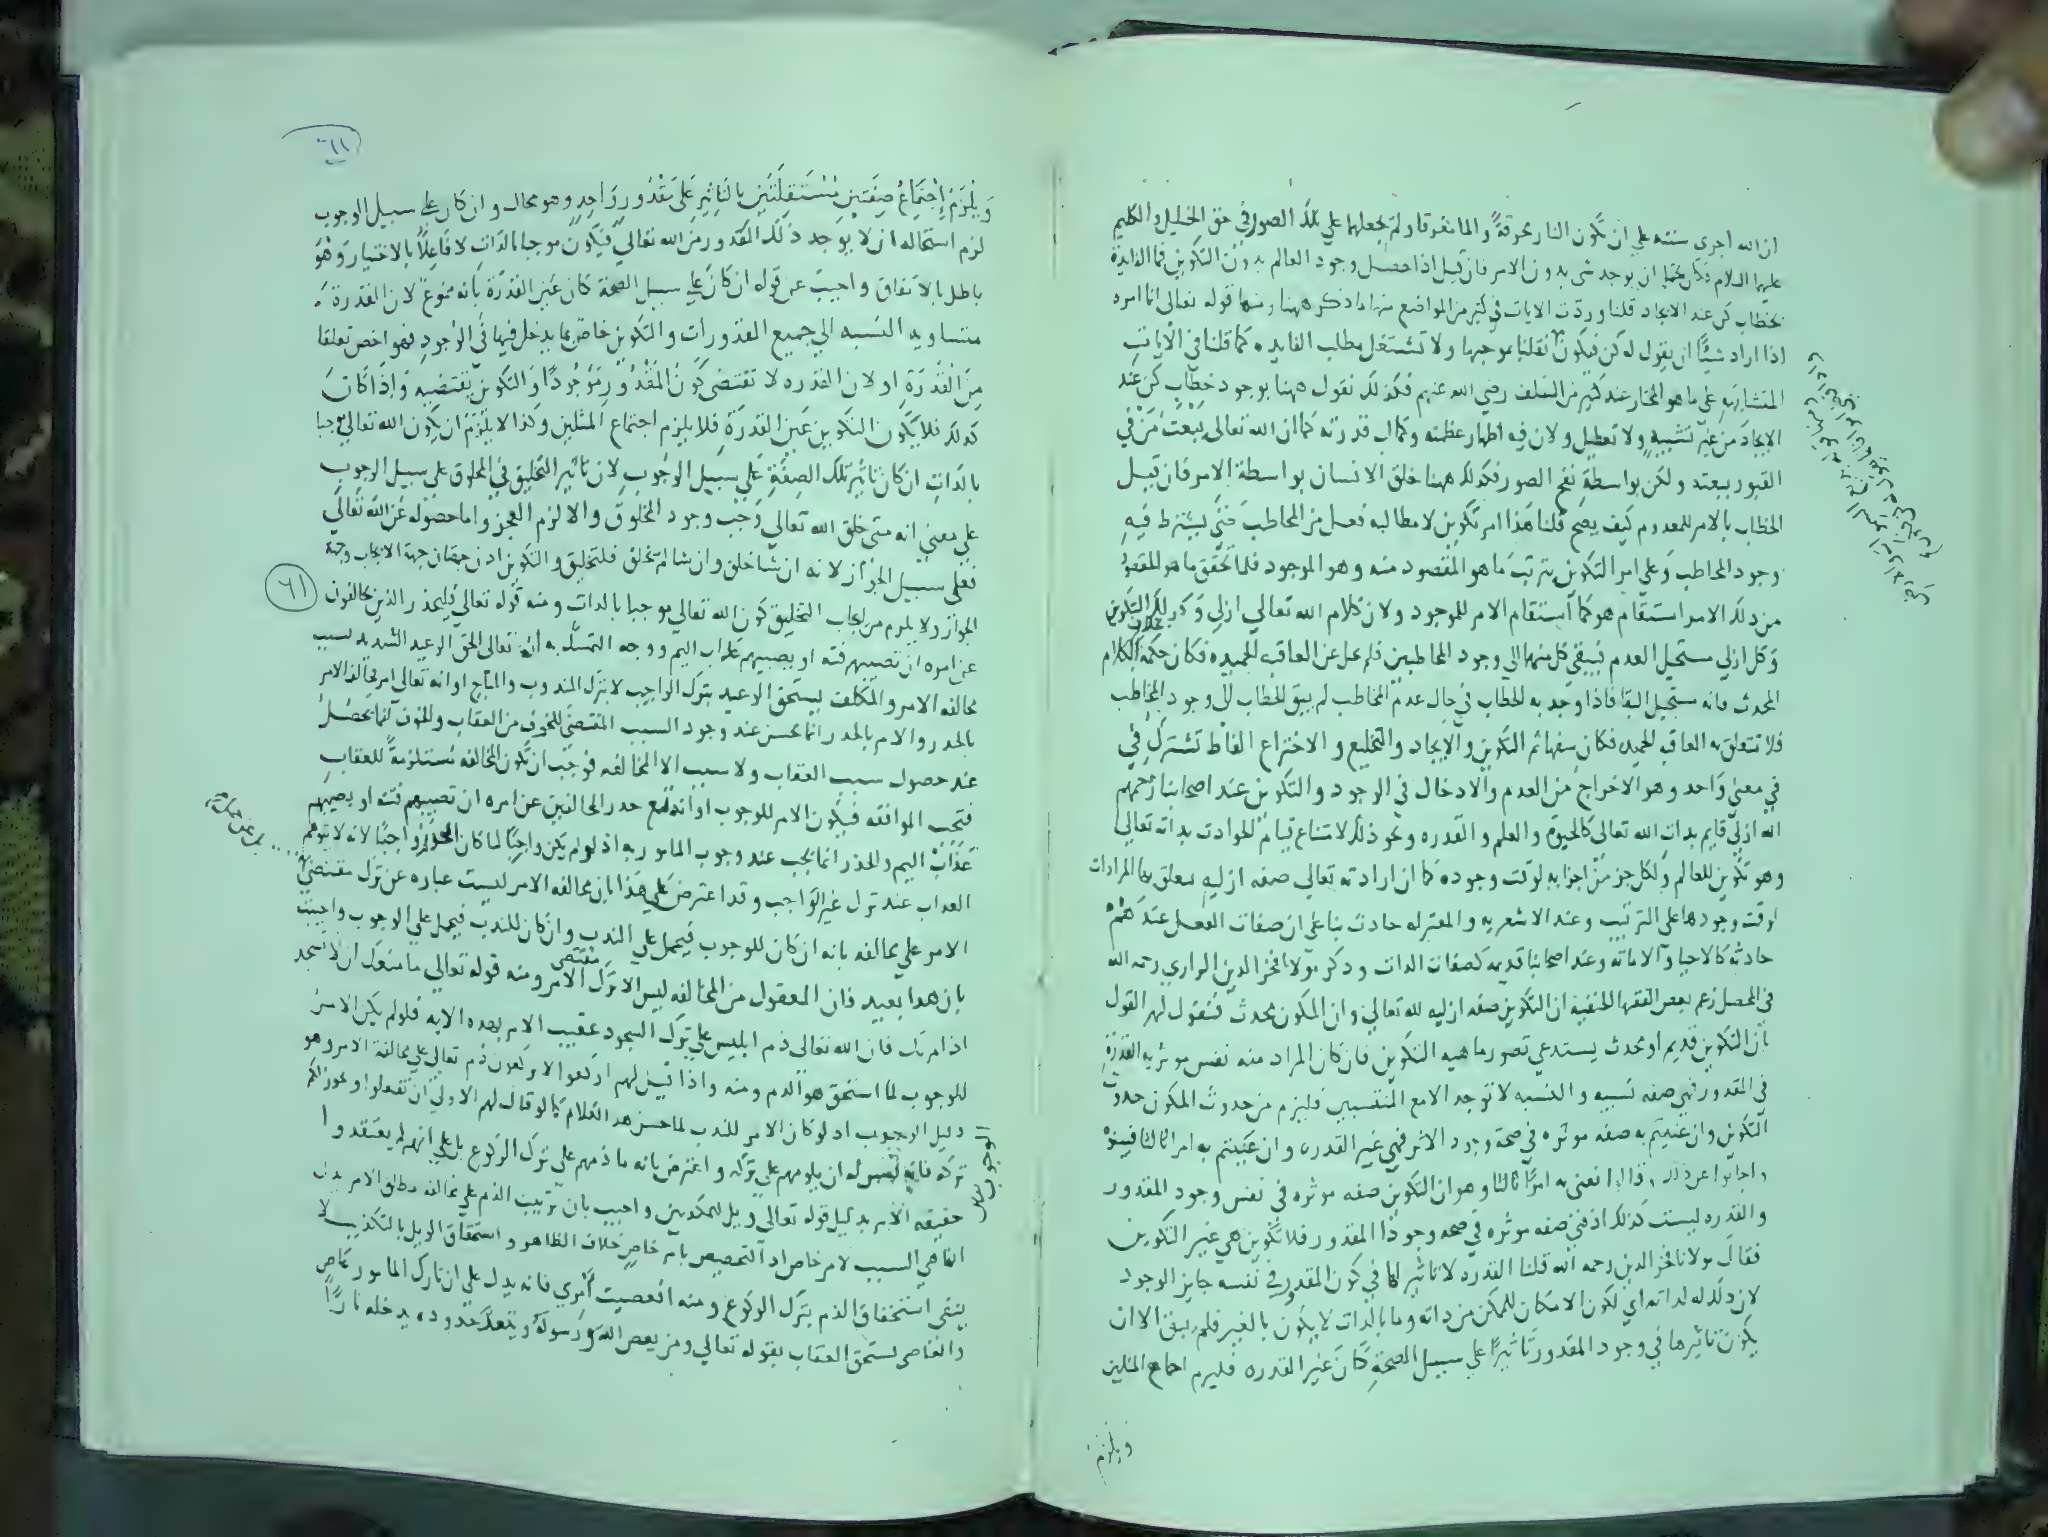 ان الله اجري سنته علي ان تكون النار محرقةً والما مغرقا ولم يجعلهما علي تلك الصور في حق الخليل والكليم
عليهما السلام فكل يحتمل ان يوجد شي بدون الامر فان قيل اذا حصل وجود العالم بدون التكوين فما الفايدة
بخطاب كن عند الايجاد قلنا وردت الايات في كثير من المواضع منها ما ذكر ههنا ومنها قوله تعالى انما امره
اذا اراد شيئًا ان يقول له كن فيكون فقلنا بموجبها ولا نشتغل بطلب الفايده كما قلنا في الايات
المتشابهة على ما هو المختار عند كثير من السلف رضي الله عنهم فكذلك نقول ههنا بوجود خطاب كن عند
الايجاد من غير تشبيه ولا تعطيل ولان فيه اظهار عظمته وكمال قدرته كما ان الله تعالى يبعث من في
القبور ببعثه ولكن بواسطة نفخ الصور فكذلك ههنا خلق الانسان بواسطة الامر فان قيل
الخطاب بالامر للمعدوم كيف يصح قلنا هذا امر تكوين لا مطالبه فعل من المخاطب حتى يشترط فيه
وجود المخاطب وعلي امر التكوين يترتب ما هو المقصود منه وهو الموجود فلما تحقق ما هو المقصود
من ذلك الامر استقام هو كما استقام الامر للموجود ولان كلام الله تعالي ازلي وكذلك التكوين
وكل ازلي مستحيل العدم فيبقي كل منهما الي وجود المخاطبين فلم يخل عن العاقبه الحميده فكان حكمة بخلاف الكلام
المحدث فانه مستحيل البقا فاذا وجد به الخطاب في حال عدم المخاطب لم يبق الخطاب الي وجود المخاطب
فلا تتعلق به العاقبه الحميده فكان سفها ثم التكوين والايجاد والتخليق والاختراع الفاظ تشترك في
في معني واحد وهو الاخراج من العدم والادخال في الوجود والتكوين عند اصحابنا رحمهم
الله ازلي قايم بذات الله تعالى كالحيوة والعلم والقدره ونحو ذلك لامتناع قيام الحوادث بذاته تعالي
وهو تكوين للعالم ولكل جز من اجزايه لوقت وجوده كما ان ارادته تعالي صفه ازليه يتعلق بها المرادات
لوقت وجودها على الترتيب وعند الاشعريه والمعتزله حادث بنا على ان صفات الفعل عندهم
حادثه كالاحيا والاماته وعند اصحابنا قديمه كصفات الذات وذكر مولانا فخر الدين الرازي رحمه الله
في المحصل زعم بعض الفقها الحنفيه ان التكوين صفه ازليه لله تعالي وان المكون محدث فنقول لهم القول
بان التكوين قديم او محدث يستدعي تصور ماهيه التكوين فان كان المراد منه نفس موثريه القدرة
في المقدور فهي صفه نسبيه والنسبه لا توجد الا مع المنتسبين فيلزم من حدوث المكون حدوث
التكوين وان عنيتم به صفه موثره في صحة وجود الاثر فهي غير القدره وان عنيتم به امرا ثالثا فبينوه
واجابوا عن ذلك وقالوا نعني به امرًا ثالثا وهو ان التكوين صفه موثره في نفس وجود المقدور
والقدره ليست كذلك اذ هي صفه موثره في صحه وجود المقدور فلا تكون هي غير التكوين
فقال مولانا فخر الدين رحمه الله قلنا القدره لا تاثير لها في كون المقدور في نفسه جايز الوجود
لان ذلك له لذاته اي لكون الامكان للممكن من ذاته وما بالذات لا يكون بالغير فلم يبق الا ان
يكون تاثيرها في وجود المقدور تاثيرًا على سبيل الصحة كان غير القدره فيلزم اجماع المثلين
ويلزم
١١
ويلزم اجتماع صفتين مستقلتين بالتاثير على مقدور واحد وهو محال وان كان على سبيل الوجوب
لزم استحاله ان لا يوجد ذلك المقدور من الله تعالي فيكون موجبا بالذات لا فاعلًا بالاختيار وهو
باطل بالاتفاق واجيب عن قوله ان كان على سبيل الصحة كان غير القدرة بانه ممنوع لان القدرة
متساويه النسبه الي جميع المقدورات والتكوين خاص بما يدخل فيها في الوجود فهو اخص تعلقا
من القدرة او لان القدره لا تقتضي كون المقدور موجودًا والتكوين يقتضيه واذا كان
كذلك فلا يكون التكوين عين القدرة فلا يلزم اجتماع المثلين وكذا لا يلزم ان يكون الله تعالي موجبا
بالذات ان كان تاثير تلك الصفة علي سبيل الوجوب لان تاثير التخليق في المخلوق علي سبيل الوجوب
علي معني انه متي خلق الله تعالي وجب وجود المخلوق والا لزم العجز واما حصوله عن الله تعالي
فعلي سبيل الجواز لانه ان شا خلق وان شا لم يخلق فللتخليق والتكوين اذن جهتان جهة الايجاب وجهة
الجواز ولا يلزم من ايجاب التخليق كون الله تعالي موجبا بالذات ومنه قوله تعالي فليحذر الذين يخالفون
٦١
عن امره ان تصيبهم فتنه او يصيبهم عذاب اليم ووجه التمسك به انه تعالى الحق الوعيد الشديد بسبب
مخالفه الامر والمكلف يستحق الوعيد بترك الواجب لا بترك المندوب والمباح او انه تعالي امر مخالف الامر
بالحذر والامر بالحذر انما يحسن عند وجود السبب المقتضي للخوف من العقاب والخوف انما يحصل
عند حصول سبب العقاب ولا سبب الا المخالفه فوجب ان تكون المخالفه مستلزمةً للعقاب
فتجب الموافقه فيكون الامر للوجوب او انه تعالى منع حذر المخالفين عن امره ان تصيبهم فتنه او يصيبهم
عذاب اليم والحذر انما يجب عند وجوب المامور به اذ لو لم يكن واجبًا لما كان الحذر واجبًا لانه لا يتوهم
العذاب عند ترك غير الواجب وقد اعترض علي هذا بان مخالفه الامر ليست عباره عن ترك مقتضي
الامر علي مخالفه بانه ان كان للوجوب فيحمل علي الندب وان كان للندب فيحمل علي الوجوب واجيب
بان هذا بعيد فان المعقول من المخالفه ليس الا ترك مقتضى الامر ومنه قوله تعالي ما منعك ان لا تسجد
اذ امرتك فان الله تعالى ذم ابليس علي ترك السجود عقيب الامر بهذه الايه فلو لم يكن الامر
للوجوب لما استحق هو الذم ومنه واذا قيل لهم اركعوا لا يركعون ذم تعالي علي مخالفة الامر وهو
دليل الوجوب اذ لو كان الامر للندب لما حسن هذا الكلام كما لو قال لهم الاولي ان تفعلوا ويجوز لكم
تركه فانه ليس له ان يلومهم علي تركه واعترض بانه ما ذمهم علي ترك الركوع بل علي انهم لم يعتقدوا
حقيقه الامر بدليل قوله تعالي ويل للمكذبين واجيب بان ترتيب الذم علي مخالفه مطلق الامر يدل
الوجوب
لا لامر خاص اذ التخصيص بامر خاص خلاف الظاهر واستحقاق الويل بالتكذيب لا
ينفي استحقاق الذم بترك الركوع ومنه افعصيت امري فانه يدل علي ان تارك المامور عاص
والعاصي يستحق العقاب بقوله تعالي ومن يعص الله ورسوله ويتعد حدوده يدخله نارًا